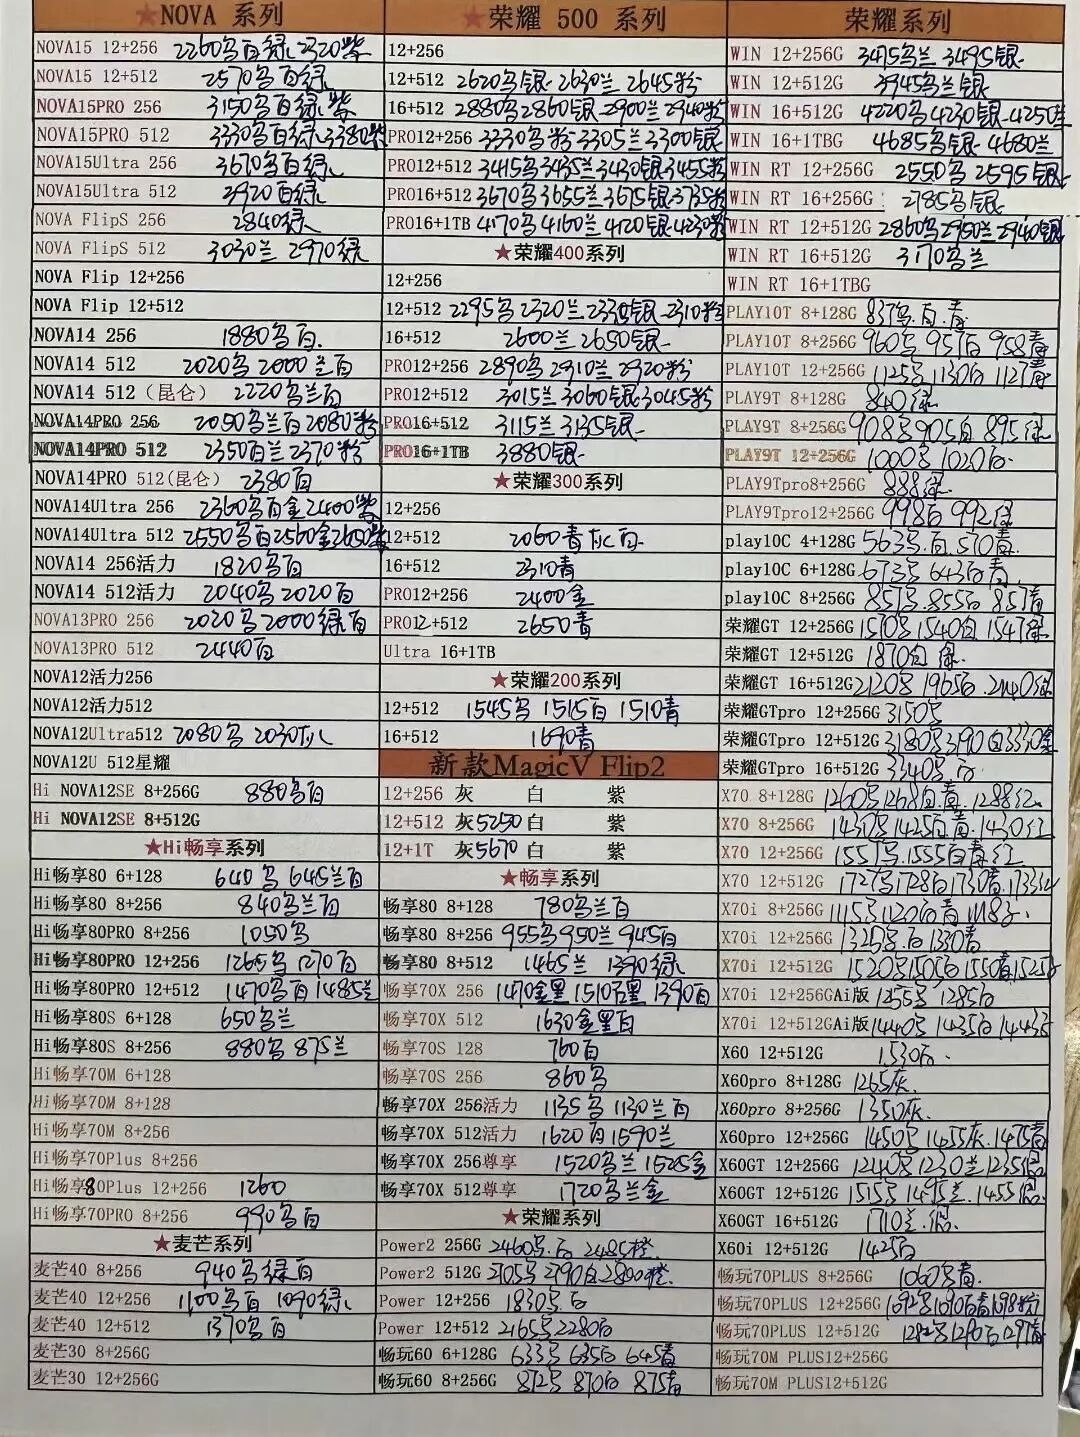 ★NOVA 系列
NOVA15 12+256 2260乌百绿 2320紫
NOVA15 12+512 2570乌百绿
NOVA15PRO 256 3150乌百绿紫
NOVA15PRO 512 3330乌百绿 3380紫
NOVA15Ultra 256 3670乌百绿
NOVA15Ultra 512 3920百绿
NOVA FlipS 256 2840绿
NOVA FlipS 512 3030兰 2970绿
NOVA Flip 12+256
NOVA Flip 12+512
NOVA14 256 1880乌百
NOVA14 512 2020乌 2000兰百
NOVA14 512（昆仑） 2220乌兰百
NOVA14PRO 256 2050乌兰百 2080粉
NOVA14PRO 512 2350百兰 2370粉
NOVA14PRO 512(昆仑） 2380百
NOVA14Ultra 256 2360乌百金 2400紫
NOVA14Ultra 512 2550乌百 2560金 2650紫
NOVA14 256活力 1820乌百
NOVA14 512活力 2040乌 2020百
NOVA13PRO 256 2020乌 2000绿百
NOVA13PRO 512 2440百
NOVA12活力256
NOVA12活力512
NOVA12Ultra512 2080乌 2030灰
NOVA12U 512星耀
Hi NOVA12SE 8+256G 880乌百
Hi NOVA12SE 8+512G
★Hi畅享系列
Hi畅享80 6+128 640乌 645兰百
Hi畅享80 8+256 840乌兰百
Hi畅享80PRO 8+256 1050乌
Hi畅享80PRO 12+256 1265乌 1270百
Hi畅享80PRO 12+512 1470乌百 1485兰
Hi畅享80S 6+128 650乌兰
Hi畅享80S 8+256 880乌 875兰
Hi畅享70M 6+128
Hi畅享70M 8+128
Hi畅享70M 8+256
Hi畅享70Plus 8+256
Hi畅享80Plus 12+256 1260
Hi畅享70PRO 8+256 990乌百
★麦芒系列
麦芒40 8+256 940乌绿百
麦芒40 12+256 1100乌百 1090绿
麦芒40 12+512 1370乌百
麦芒30 8+256G
麦芒30 12+256G
★荣耀 500 系列
12+256
12+512 2620乌银 2630兰 2645粉
16+512 2880乌 2860银 2900兰 2940粉
PRO12+256 3330乌粉 3305兰 3300银
PRO12+512 3415乌 3435兰 3430银 3455粉
PRO16+512 3670乌 3655兰 3675银 3735粉
PRO16+1TB 4170乌 4160兰 4120银 4230粉
★荣耀400系列
12+256
12+512 2295乌 2320兰 2330银 2310粉
16+512 2600兰 2650银
PRO12+256 2890乌 2910兰 2920粉
PRO12+512 3015兰 3060银 3045粉
PRO16+512 3115兰 3135银
PRO16+1TB 3880银
★荣耀300系列
12+256
12+512 2060青灰百
16+512 2310青
PRO12+256 2400金
PRO12+512 2650青
Ultra 16+1TB
★荣耀200系列
12+512 1545乌 1515百 1510青
16+512 1690青
新款MagicV Flip2
12+256 灰 白 紫
12+512 灰5250 白 紫
12+1T 灰5670 白 紫
★畅享系列
畅享80 8+128 780乌兰百
畅享80 8+256 955乌 950兰 945百
畅享80 8+512 1465兰 1390绿
畅享70X 256 1490金黑 1390百
畅享70X 512 1630金黑百
畅享70S 128 760百
畅享70S 256 860乌
畅享70X 256活力 1135乌 1130兰百
畅享70X 512活力 1620百 1590兰
畅享70X 256尊享 1520乌兰 1525金
畅享70X 512尊享 1720乌兰金
★荣耀系列
Power2 256G 2460乌.百 2485橙
Power2 512G 2790白 2800橙
Power 12+256 1830乌.百
Power 12+512 2165乌 2280百
畅玩60 6+128G 633乌 635百 645青
畅玩60 8+256G 872乌 870百 875青
荣耀系列
WIN 12+256G 3475乌兰 3495银
WIN 12+512G 3945乌兰银
WIN 16+512G 4220乌 4230银 4250兰
WIN 16+1TBG 4685乌银 4680兰
WIN RT 12+256G 2550乌 2595银
WIN RT 16+256G 2785乌银
WIN RT 12+512G 2860乌 2950兰 2940银
WIN RT 16+512G 3170乌兰
WIN RT 16+1TBG
PLAY10T 8+128G 837乌.百.青
PLAY10T 8+256G 960乌 957百 958青
PLAY10T 12+256G 1125乌 1130百 1127青
PLAY9T 8+128G 840绿
PLAY9T 8+256G 908乌 905百 895绿
PLAY9T 12+256G 1000乌 1020百
PLAY9Tpro8+256G 888绿
PLAY9Tpro12+256G 998百 992绿
play10C 4+128G 563乌.百 570青
play10C 6+128G 673乌 643百青
play10C 8+256G 857乌 855百 857青
荣耀GT 12+256G 1510乌 1540白 1547绿
荣耀GT 12+512G 1870白 绿
荣耀GT 16+512G 2120乌 1965百 2140绿
荣耀GTpro 12+256G 3150乌
荣耀GTpro 12+512G 3180乌 3190白 3330金
荣耀GTpro 16+512G 3340乌百
X70 8+128G 1260乌 1268白.青 1288红
X70 8+256G 1430乌 1425百青 1430红
X70 12+256G 1557乌 1555白青红
X70 12+512G 1727乌 1728百 1730青 1733红
X70i 8+256G 1115乌 1120百青
X70i 12+256G 1325乌.百 1330青
X70i 12+512G 1520乌 1505百 1550青
X70i 12+256GAi版 1255乌 1285百
X70i 12+512GAi版 1440乌 1435百
X60 12+512G 1530百
X60pro 8+128G 1265灰
X60pro 8+256G 1350灰
X60pro 12+256G 1450乌 1455灰 1475青
X60GT 12+256G 1240乌 1230兰 1235银
X60GT 12+512G 1515乌 1495兰 1455银
X60GT 16+512G 1710兰.银
X60i 12+512G 1425百
畅玩70PLUS 8+256G 1060乌青
畅玩70PLUS 12+256G 1092乌 1090百青 1098粉
畅玩70PLUS 12+512G 1292乌 1290百 1297青
畅玩70M PLUS12+256G
畅玩70M PLUS12+512G